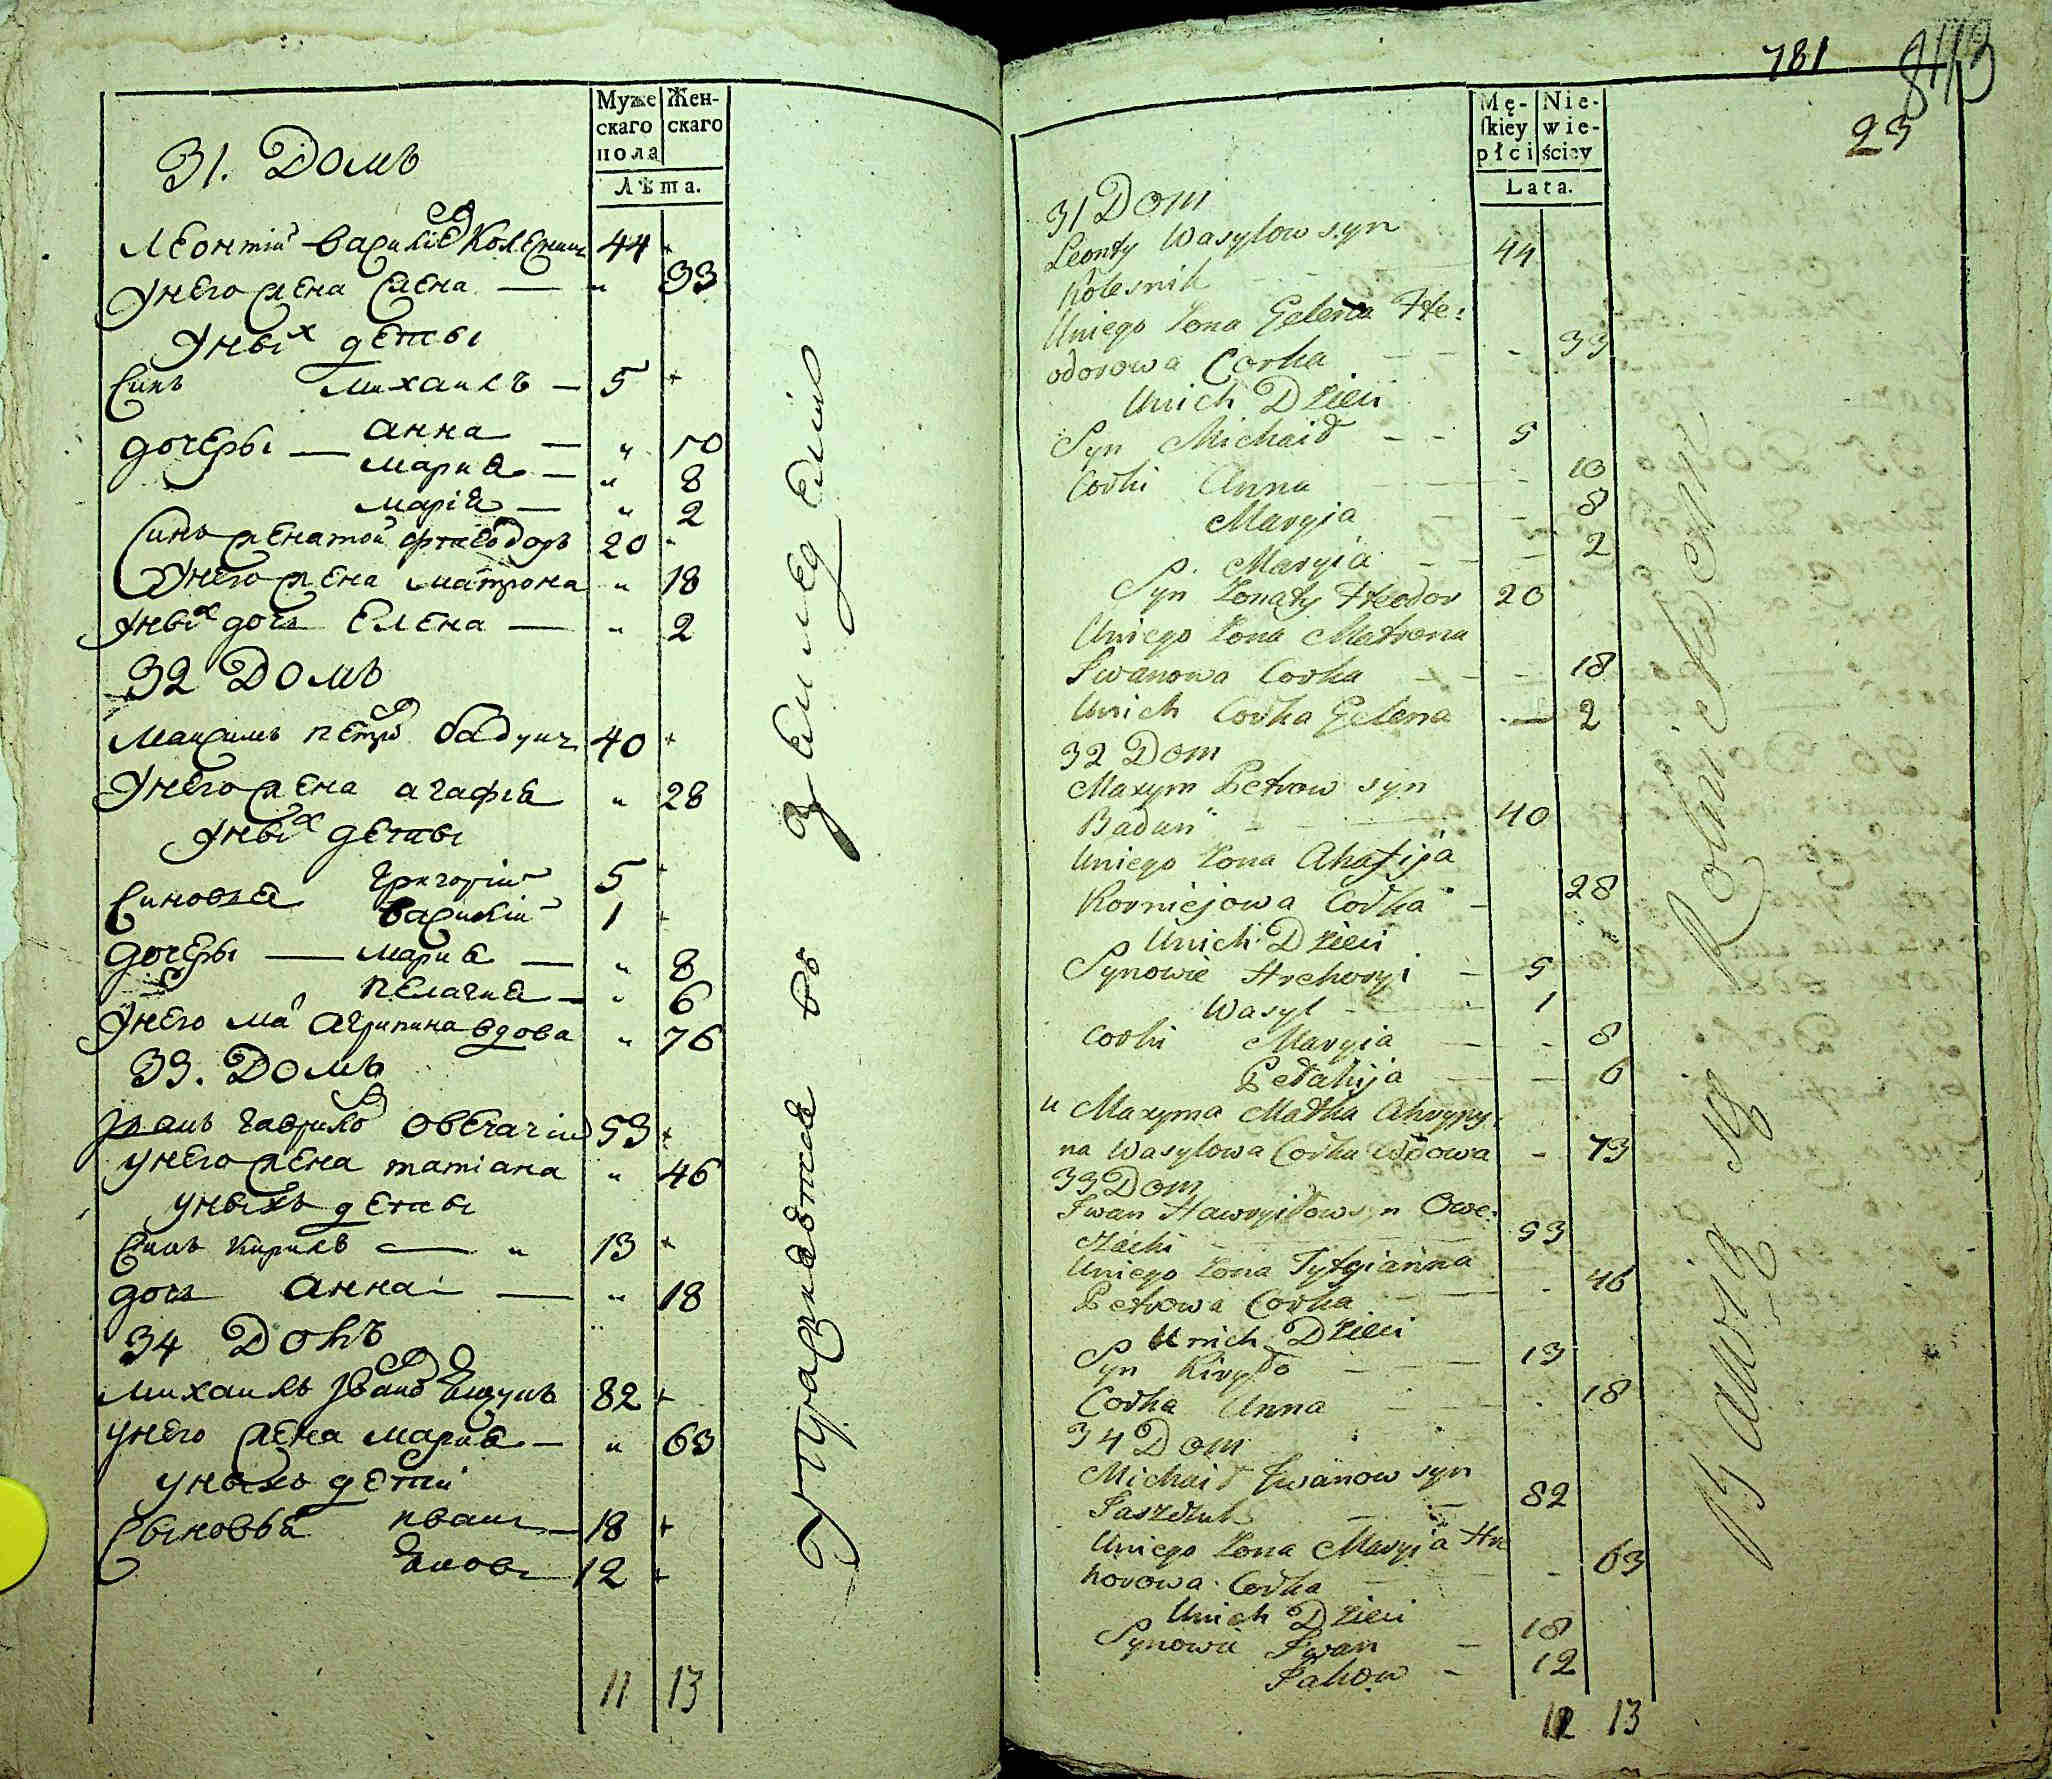 Муже
скаго
пола
Жен-
скаго
Лѣта.
31. Домъ
Леонтій Василіевъ Колесник 44
Унего жена Елена — " 33
Уныхъ детвы
Синъ Михаилъ — 5
дочеры — анна — " 10
мариа — " 8
маріа — " 2
Синъ женатой Фтеодоръ 20
Унего жена матрона " 18
Уныхъ дочь Елена — " 2
32 Домъ
Максимъ Петровъ бадунъ 40
Унего жена агафіа " 28
Уныхъ детвы
Синовья Григорій 5
Василій 1
дочеры — мариа — " 8
Пелагиа — " 6
Унего мать Агрипина вдова " 76
33. Домъ
Иванъ гавриловъ Овечачій 53
унего жена татіана " 46
уныхъ детвы
Синъ Кирилъ — " 13
дочь анна — " 18
34 Домъ
михаилъ Ивановъ 82
унего жена мариа — " 63
уныхъ детій
Сыновья иванъ — 18
Яковъ 12
11 13
Упражняются въ земледеліи
781
23
Mę-
ſkiey
płci
Nie-
wie-
ściey
Lata.
31 Dom
Leonty Wasylow syn
Kolesnik 44
Uniego Żona Gelena The:
odorowa Corka - - - 33
Unich Dzieci
Syn Michaił - - 5
Corki Anna 10
Maryja - - 8
Maryia - - 2
Syn Żonaty Theodor 20
Uniego Żona Matrona
Iwanowa Corka - - - 18
Unich Corka Gelena - 2
32 Dom
Maxym Petrow syn
Badun 40
Uniego Żona Ahafija
Korniejowa Corka - 28
Unich Dzieci
Synowie Hrehoryi - 5
Wasyl 1
Corki Maryia - - 8
Pełahija - - 6
u Maxyma Matka Ahrypy:
na Wasylowa Corka Wdowa - 73
33 Dom
Iwan Hawryiłow syn Owe:
czacki 53
Uniego Żona Tytyianna
Petrowa Corka - - 46
Unich Dzieci
Syn Kiryło - - - 13
Corka Anna 18
34 Dom
Michaił Iwanow syn
82
Uniego Żona Maryia Hre
horowa Corka - 63
Unich Dzieci
Synowie Iwan - 18
Jakow - 12
12 13
Bawią się Rolnictwem